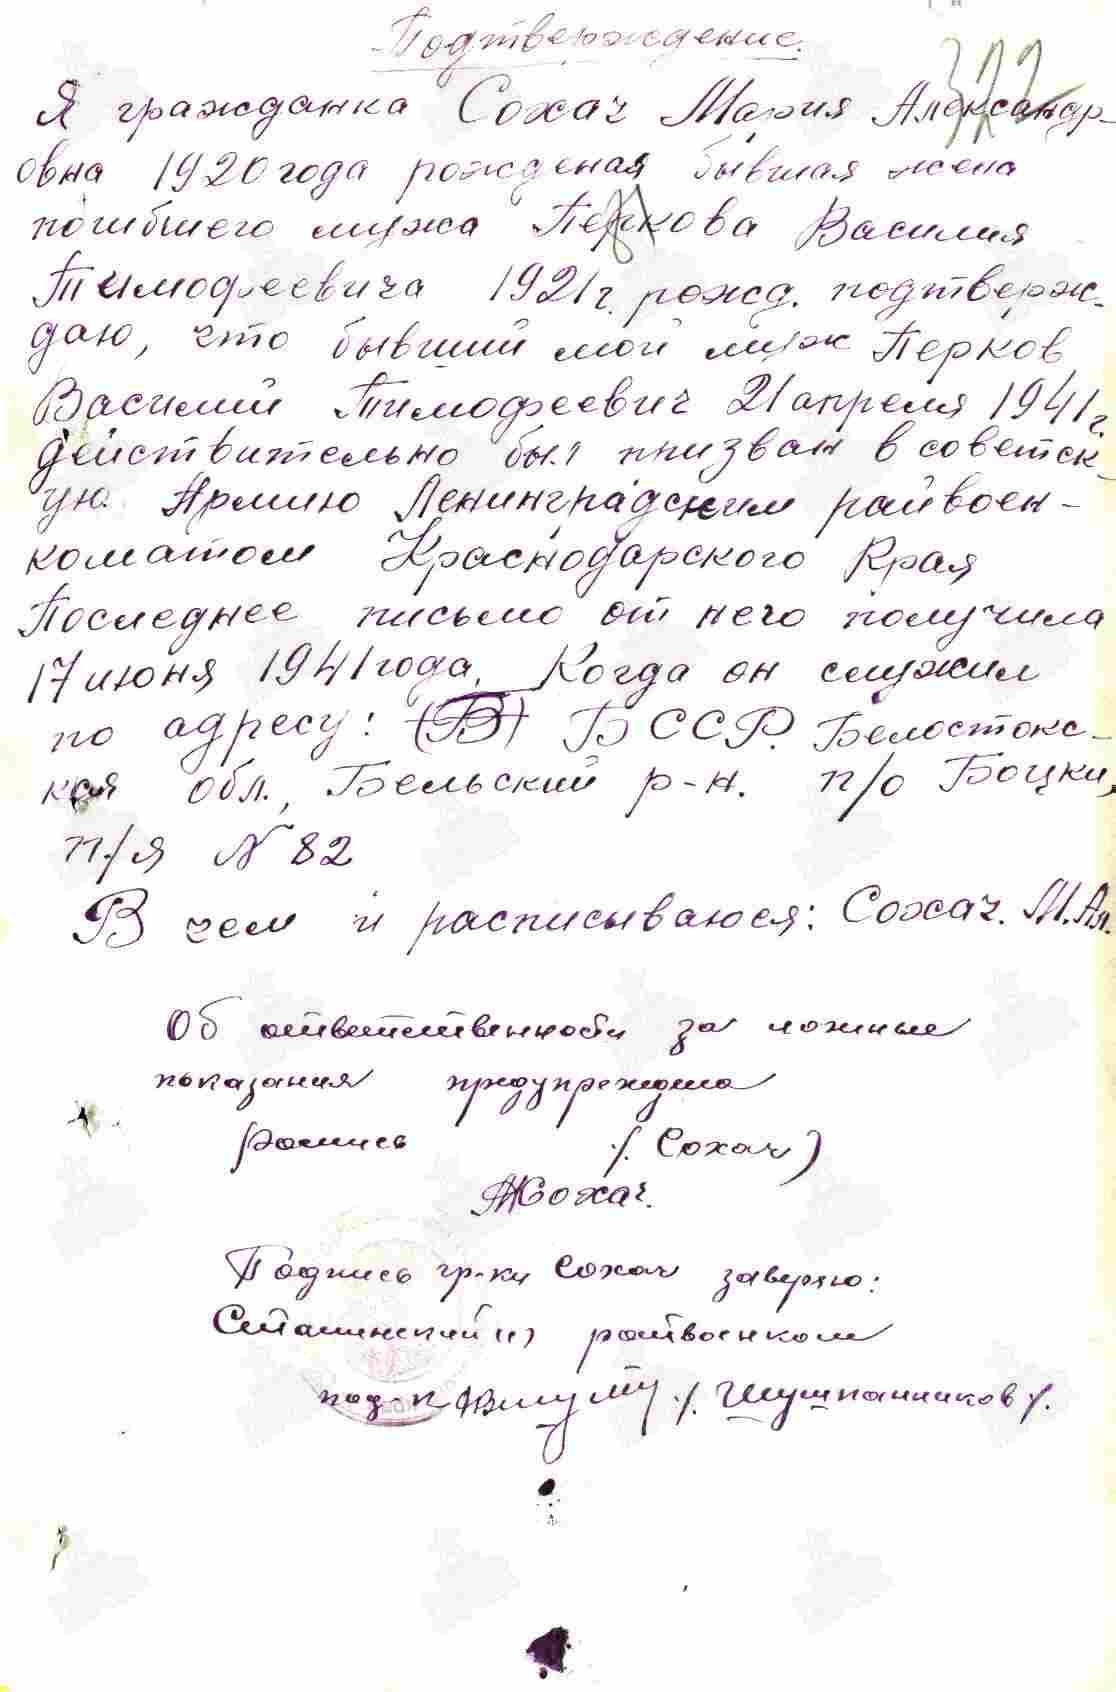 Подтверждение.
322
Я гражданка Сохач Мария Александр-
овна 1920 года рожденая бывшая жена
погибшего мужа Перкова Василия
Тимофеевича 1921 г. рожд. подтверж-
даю, что бывший мой муж Перков
Василий Тимофеевич 21 апреля 1941 г.
действительно был призван в советск-
ую Армию Ленинградским райвоен-
коматом Краснодарского Края
Последнее письмо от него получила
17 июня 1941 года. Когда он служил
по адресу: (В) БССР. Белостокс-
кая обл., Бельский р-н. п/о Боцки,
п/я N 82
В чем и расписываюся: Сохач. М. Ал.
Об ответственности за ложные
показания предупреждена
Роспись /. Сохач)
Сохач.
Подпись гр-ки Сохач заверяю:
Сталинский райвоенком
под-к /. Шушпанников /.